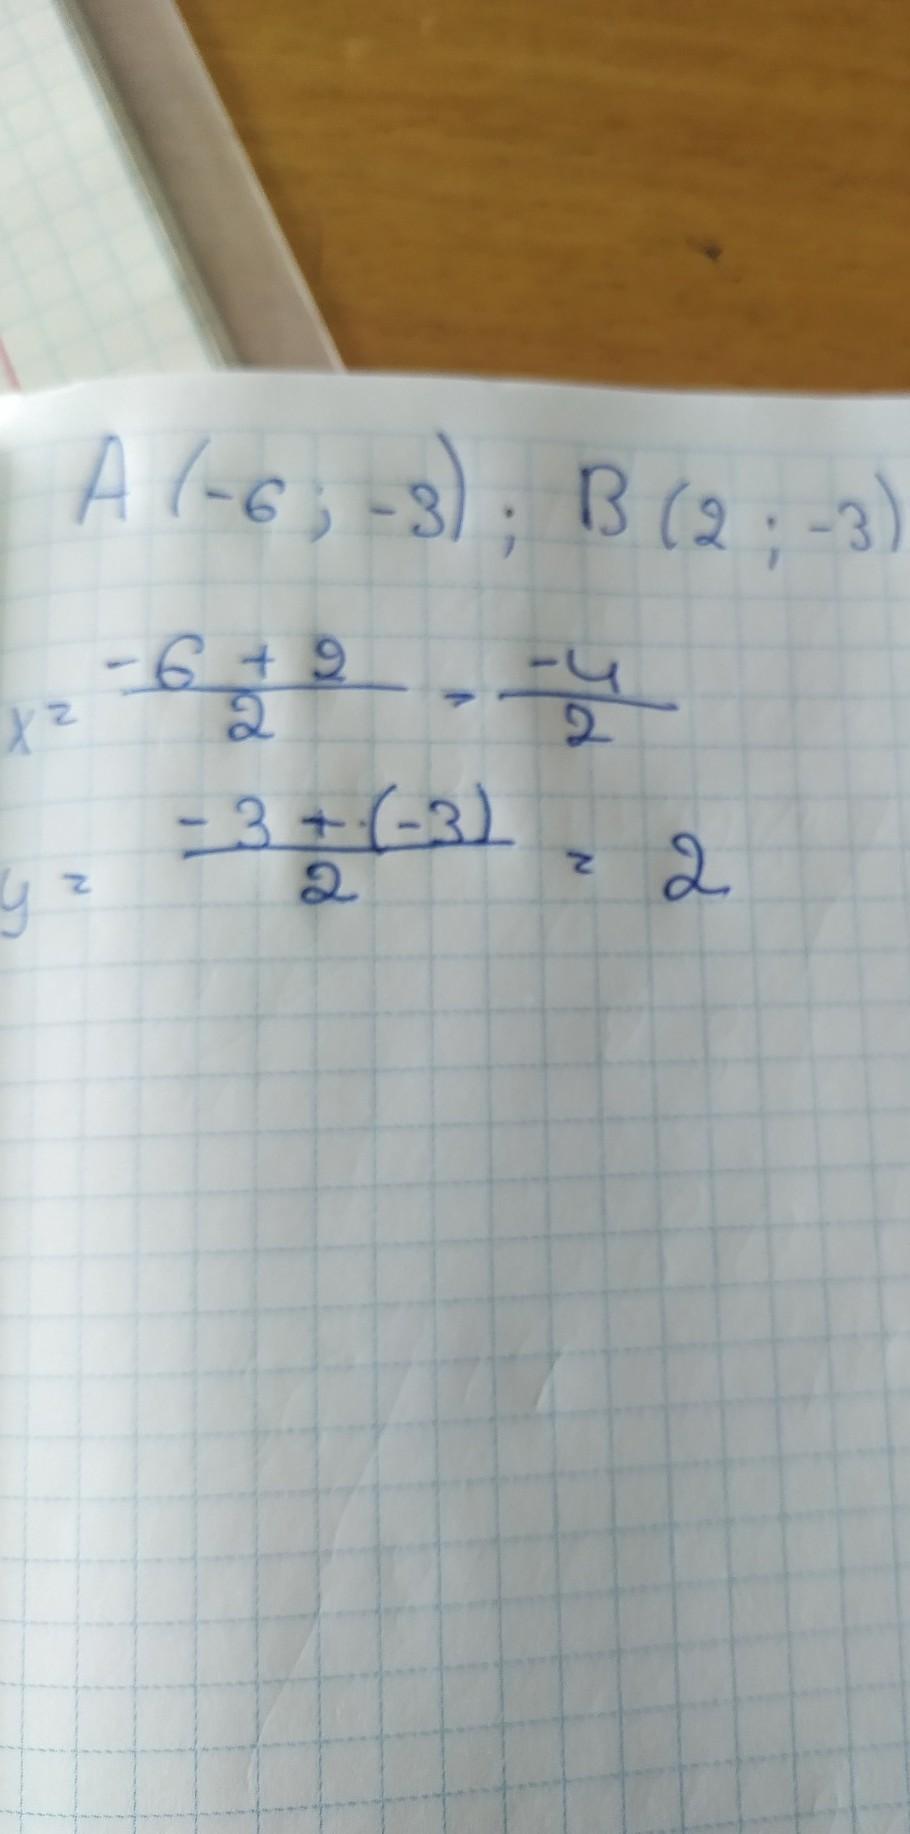 A (-6 ; -3) ; B (2 ; -3)
x = \frac{-6 + 2}{2} = \frac{-4}{2}
y = \frac{-3 + (-3)}{2} = 2